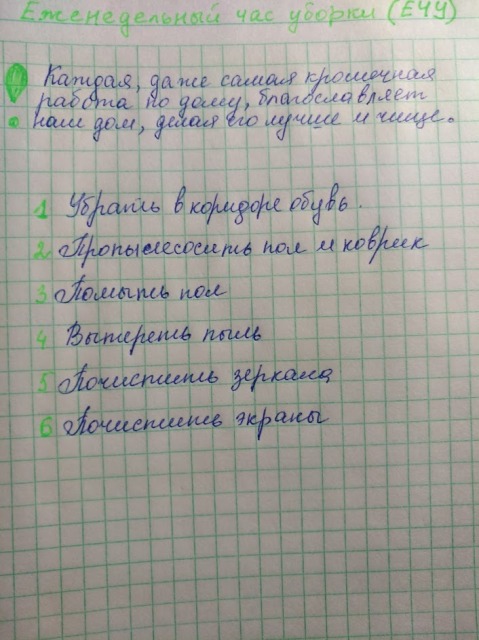 Еженедельный час уборки (ЕЧУ)
! Каждая, даже самая крошечная
работа по дому, благославляет
наш дом, делая его лучше и чище.
1 Убрать в коридоре обувь.
2 Пропылесосить пол и коврик
3 Помыть пол
4 Вытереть пыль
5 Почистить зеркала
6 Почистить экраны